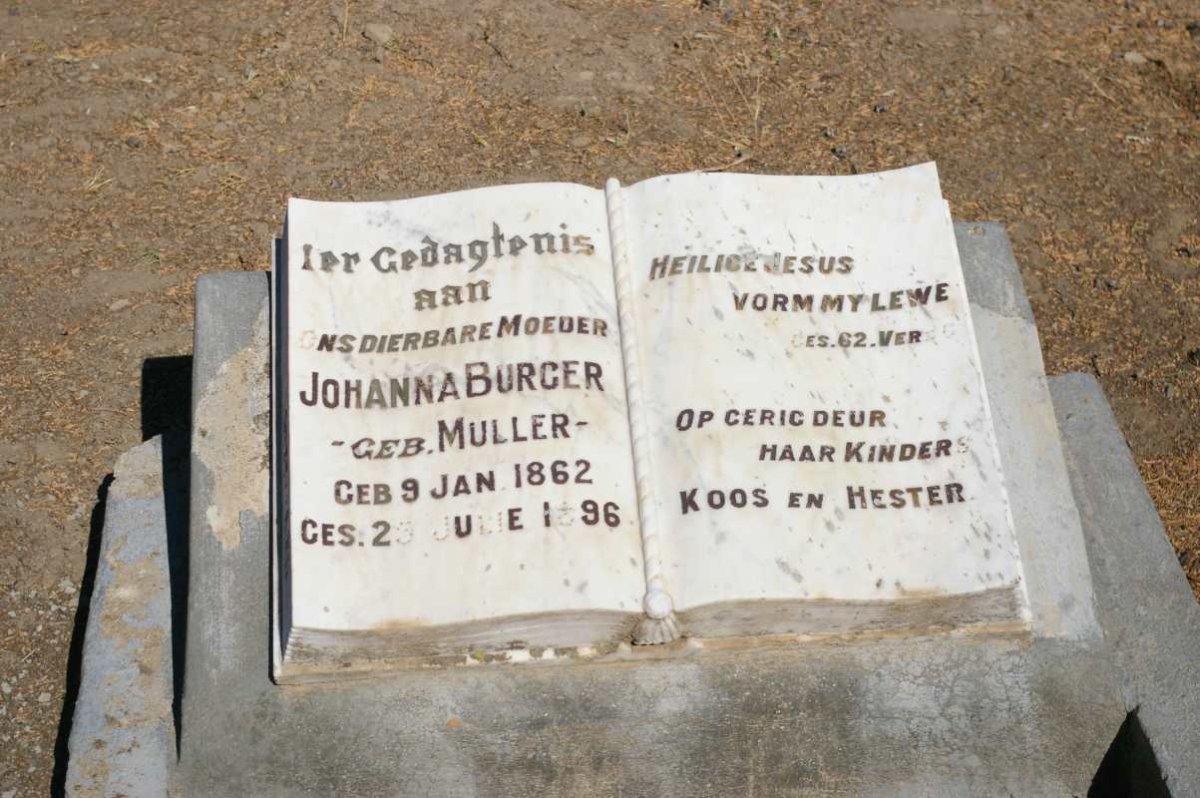 Ter Gedagtenis
aan
ONS DIERBARE MOEDER
JOHANNA BURGER
- GEB. MULLER -
GEB 9 JAN 1862
GES. JULIE 1896
HEILIGE JESUS
VORM MY LEWE
GES. 62. VERS
OP GERIG DEUR
HAAR KINDERS
KOOS EN HESTER